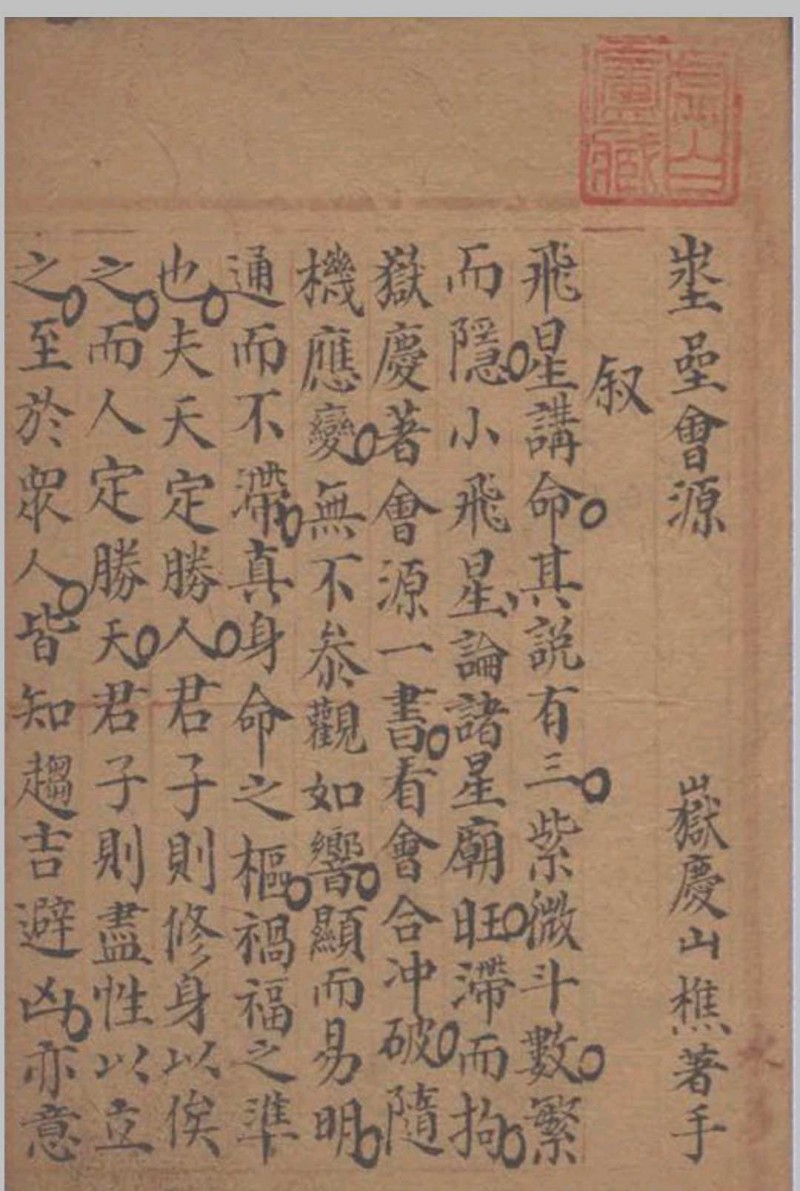 虛白
廬藏
埊會源 嶽慶山樵著手
叙
飛星講命。其說有三。紫微斗數。繁
而隱。小飛星論諸星廟旺。滯而拘。
嶽慶著會源一書。看會合冲破。隨
機應變。無不叅觀如響。顯而易明。
通而不滯。真身命之樞。禍福之準
也。夫天定勝人。君子則修身以俟
之。而人定勝天。君子則盡性以立
之。至於眾人。皆知趨吉避凶。亦意